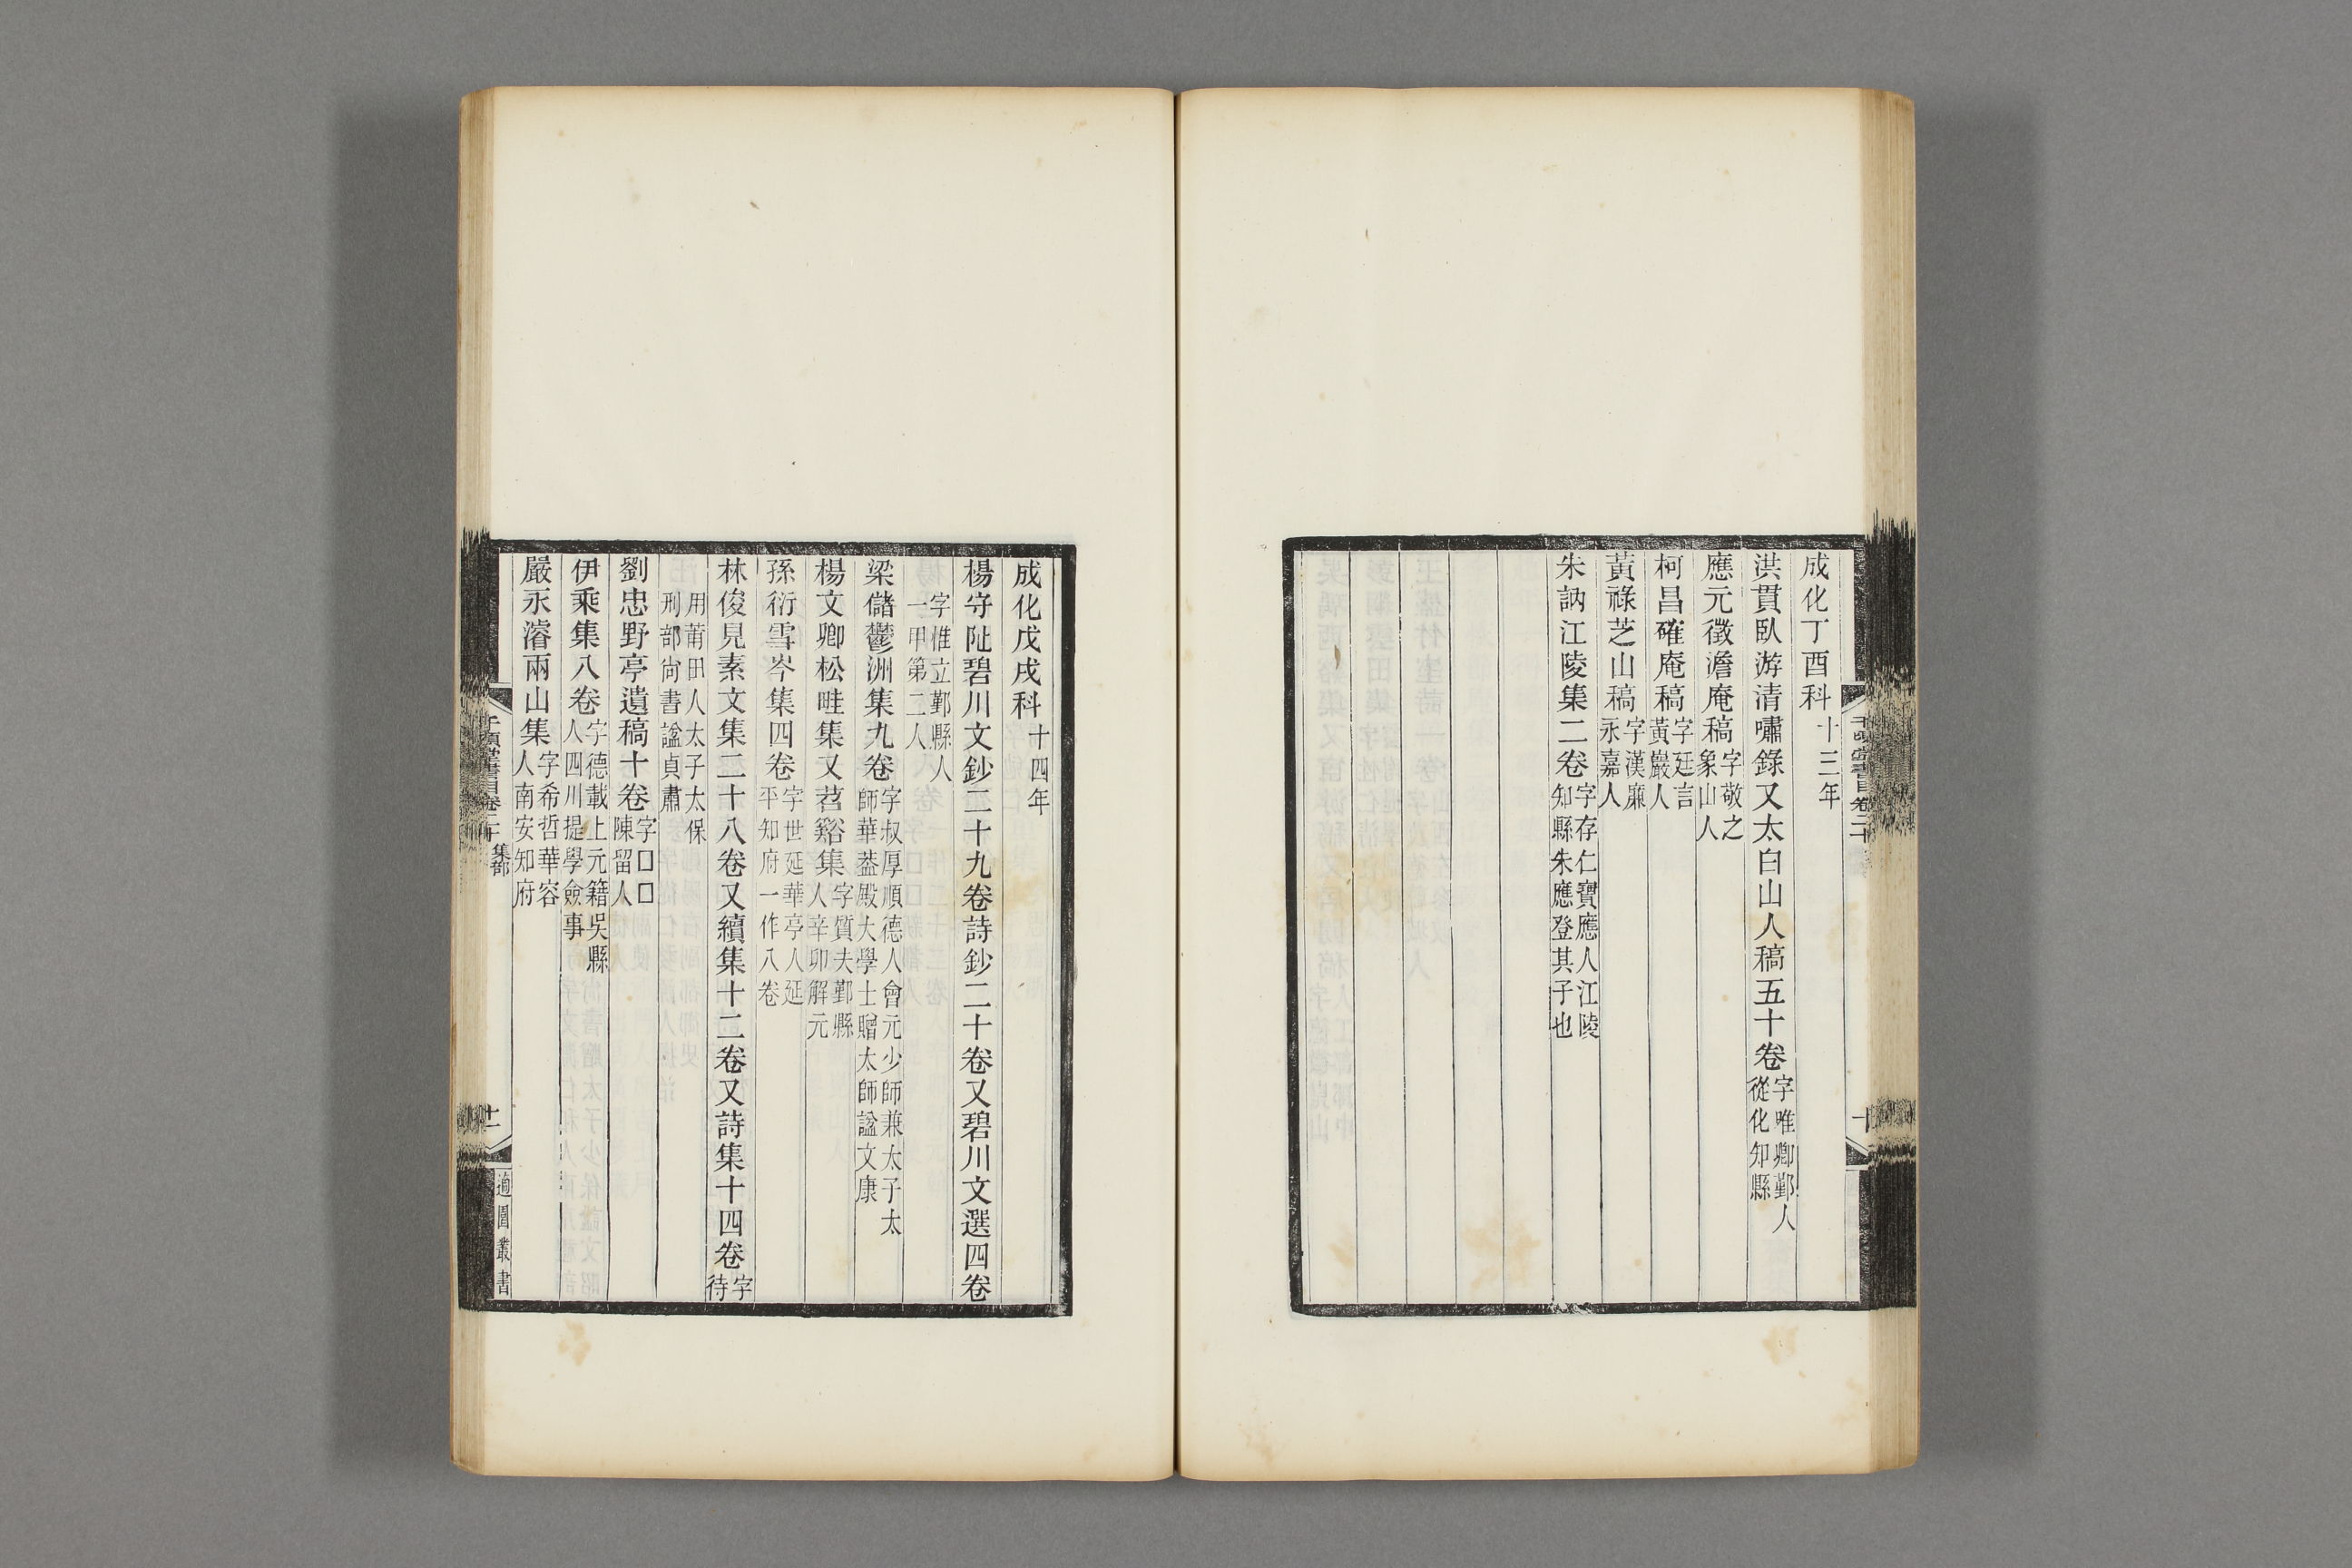 成化丁酉科十三年
洪貫臥游清嘯錄又太白山人稿五十卷字唯卿鄞人從化知縣
應元徵澹庵稿字敬之象山人
柯昌確庵稿字廷言黃巖人
黃祿芝山稿字漢廉永嘉人
朱訥江陵集二卷字存仁寶應人江陵知縣朱應登其子也
千頃堂書目卷二十
十
成化戊戌科十四年
楊守阯碧川文鈔二十九卷詩鈔二十卷又碧川文選四卷
字惟立鄞縣人一甲第二人
梁儲鬱洲集九卷字叔厚順德人會元少師兼太子太師華蓋殿大學士贈太師諡文康
楊文卿松畦集又苕谿集字質夫鄞縣人辛卯解元
孫衍雪岑集四卷字世延華亭人延平知府一作八卷
林俊見素文集二十八卷又續集十二卷又詩集十四卷字待
用莆田人太子太保刑部尚書諡貞肅
劉忠野亭遺稿十卷字□□陳留人
伊乘集八卷字德載上元籍吳縣人四川提學僉事
嚴永濬兩山集字希哲華容人南安知府
千頃堂書目卷二十 集部
十一
適園叢書